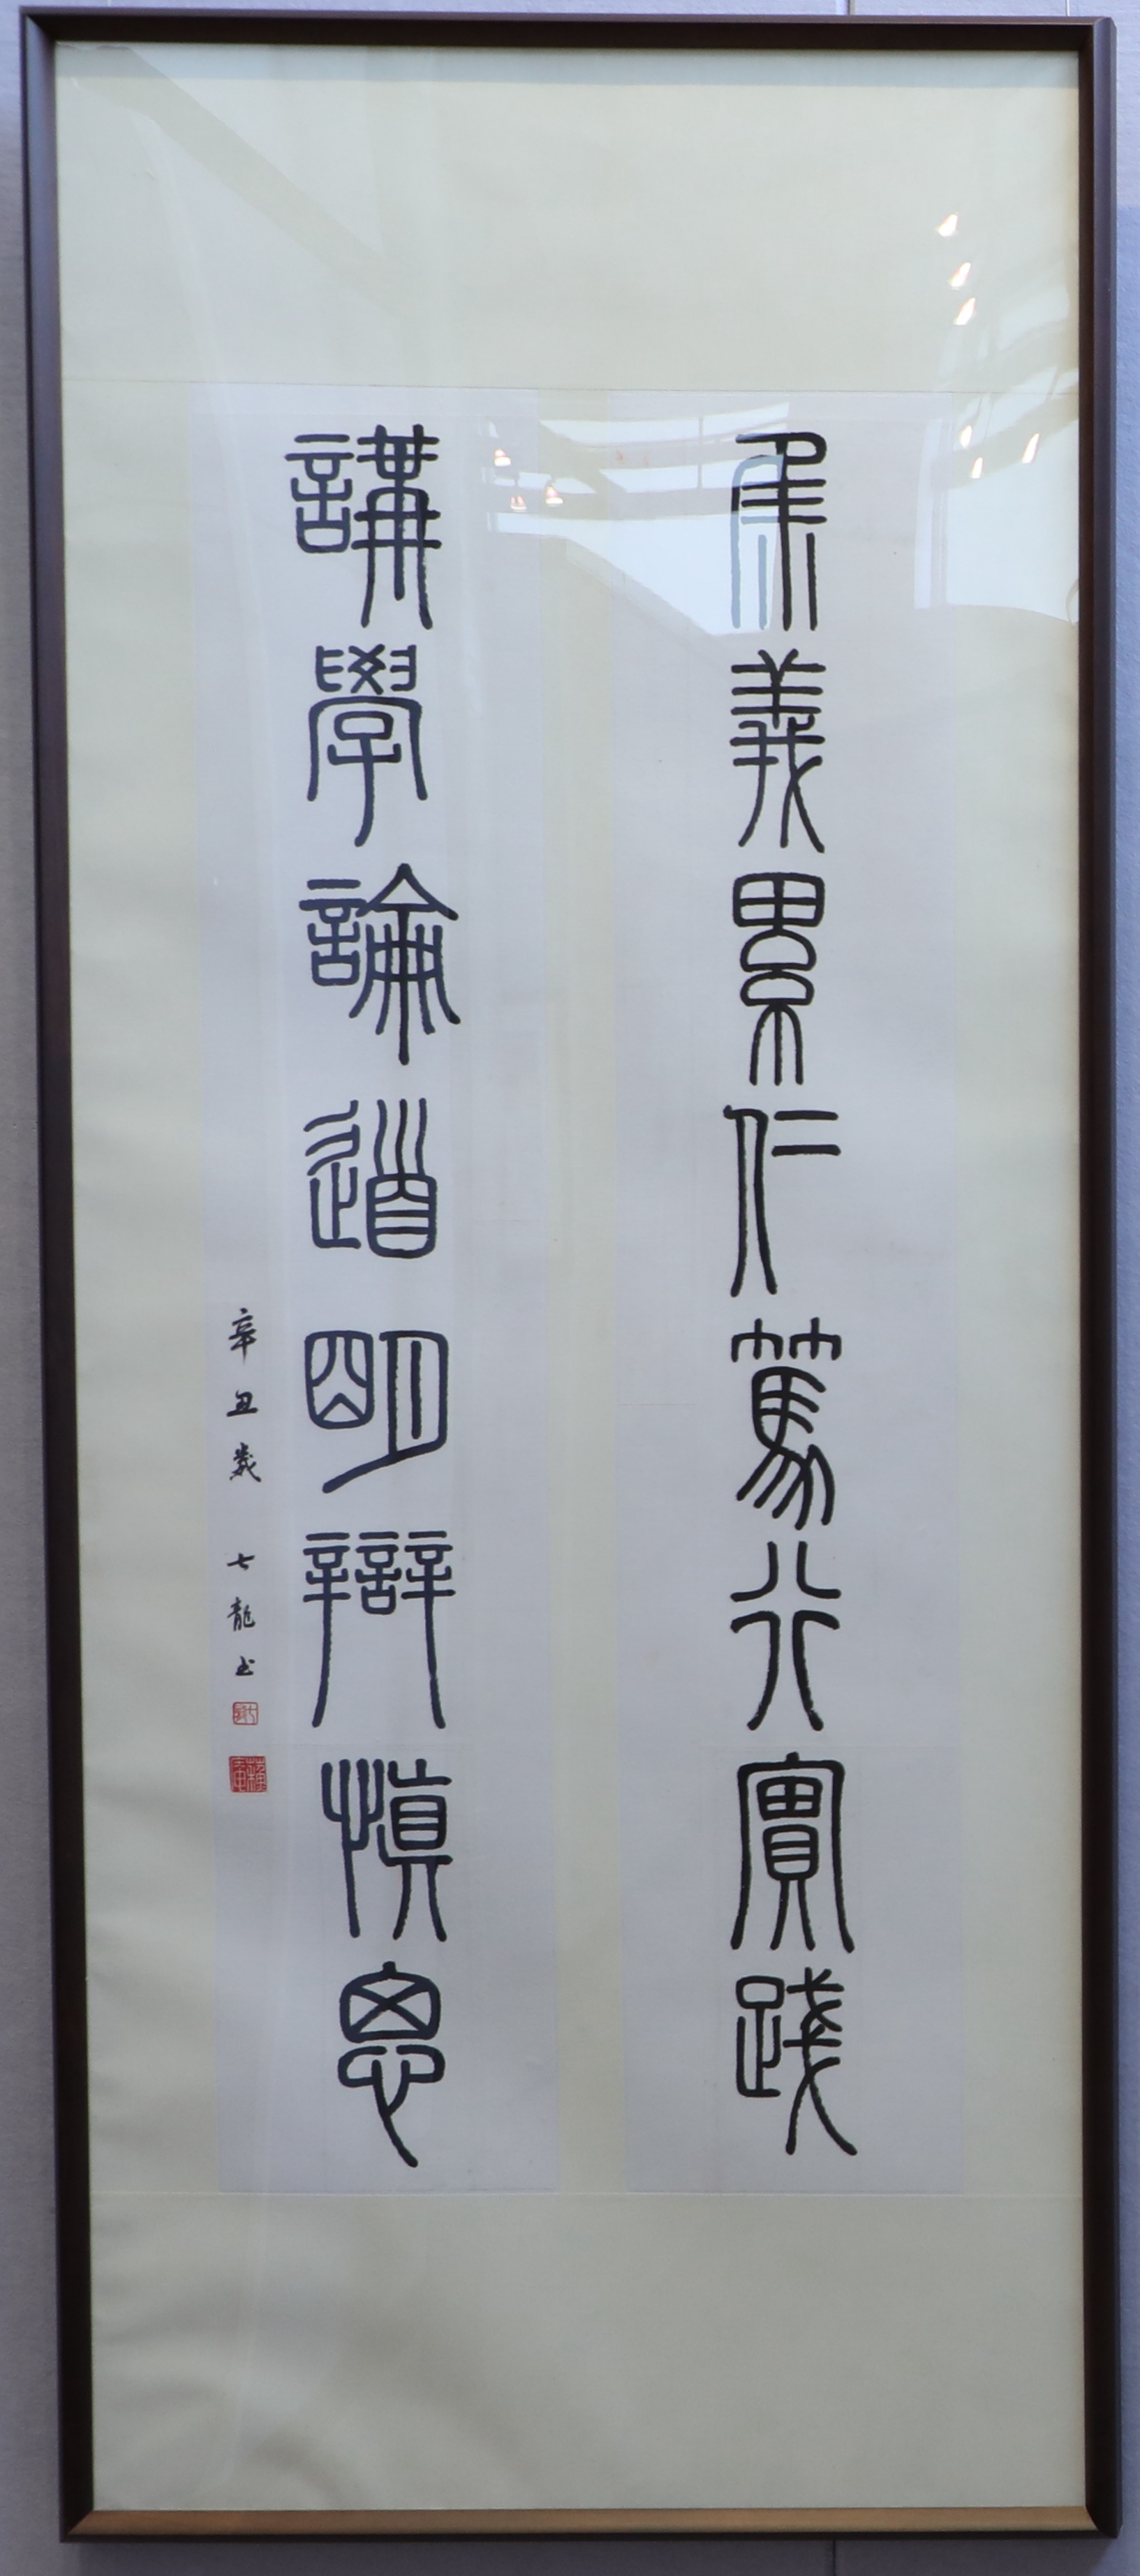 集義累仁篤行實踐
講學論道明辯慎思
辛丑歲 七龍書